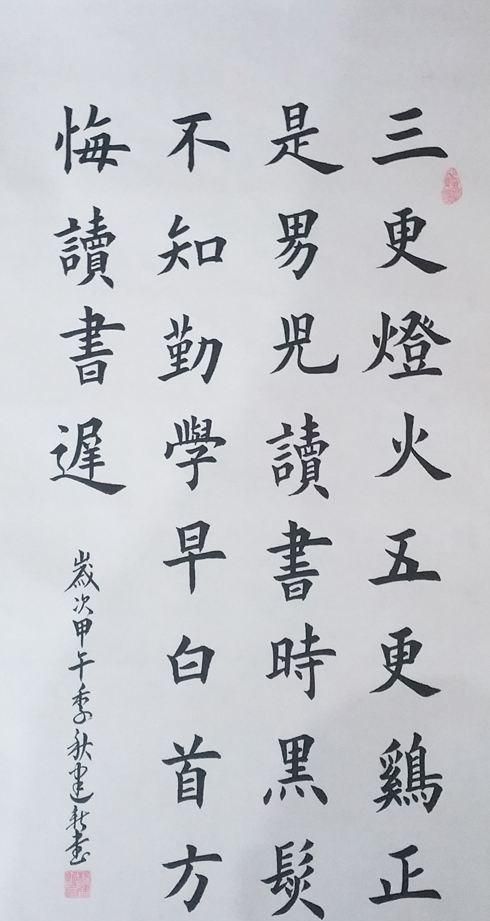 三更燈火五更鷄正
是男児讀書時黒髮
不知勤學早白首方
悔讀書遲
歲次甲午季秋建新書